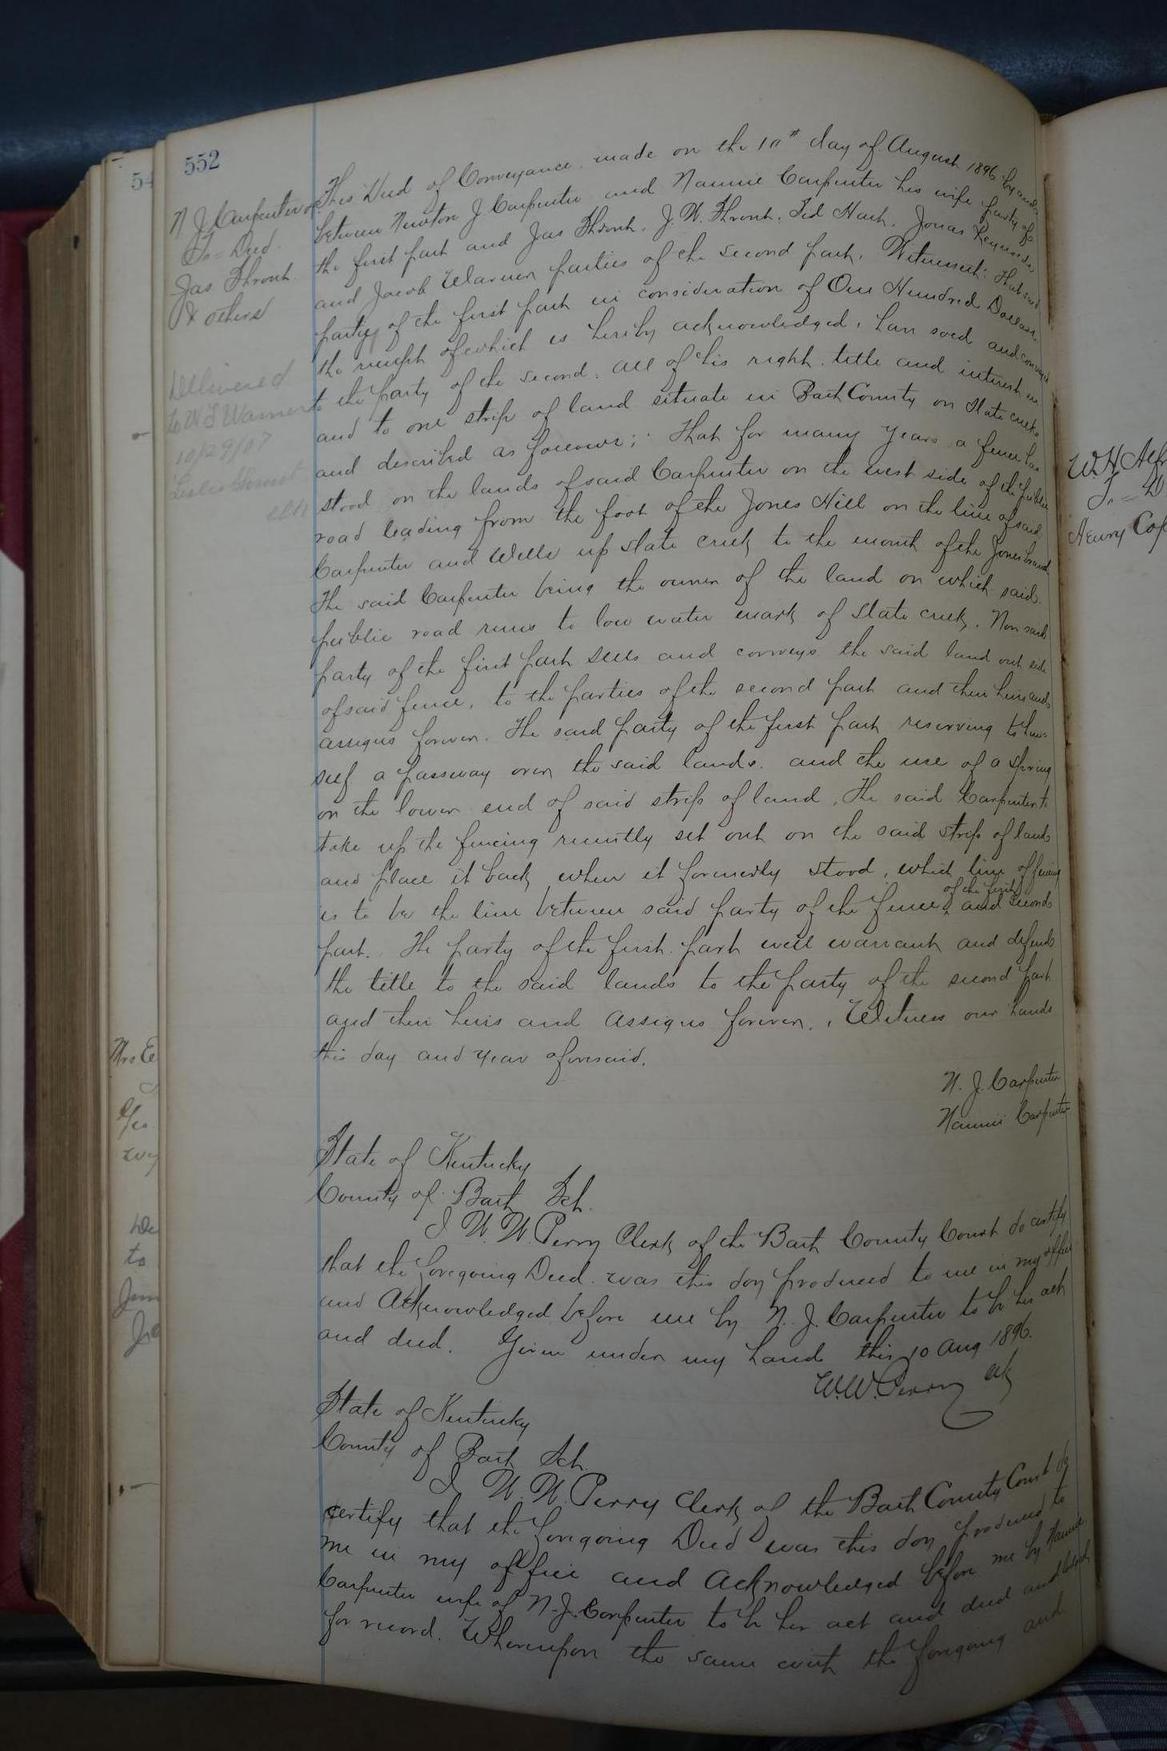 552
N J Carpenter &c
To = Deed
Jas Thront
& others
Delivered
to W T Warner
10/29/07
This Deed of Conveyance made on the 10" day of August 1896 by and
between Newton J Carpenter and Nannie Carpenter his wife party of
the first part and Jas Thront, J. W. Thront, Ted Hart, Jonas
and Jacob Warner parties of the second part, Witnesseth: That said
party of the first part in consideration of One Hundred Dollars
the receipt of which is hereby acknowledged, has sold and conveyed
to the party of the second, all of his right title and interest in
and to one strip of land situate in Bath County on Slate creek
and described as follows; That for many years a fence has
stood on the lands of said Carpenter on the west side of the public
road leading from the foot of the Jones Hill on the line of said
Carpenter and Wells up Slate creek to the mouth of the Jones branch
The said Carpenter being the owner of the land on which said
public road runs to low water mark of Slate creek. Now said
party of the first part sells and conveys the said land out side
of said fence, to the parties of the second part and their heirs and
assigns forever. The said party of the first part reserving to him-
self a passway over the said lands. and the use of a spring
on the lower end of said strip of land, The said Carpenter to
take up the fencing recently set out on the said strip of land
and place it back where it formerly stood, which line of fencing
is to be the line between said party of the fence of the first and second
part. The party of the first part will warrant and defend
the title to the said lands to the party of the second part
and their heirs and assigns forever. Witness our hands
this day and year aforesaid.
N. J. Carpenter
Nannie Carpenter
State of Kentucky
County of Bath Sct.
I W W Perry Clerk of the Bath County Court do certify
that the foregoing Deed was this day produced to me in my office
and Acknowledged before me by N. J. Carpenter to be his act
and deed. Given under my hand this 10 Aug 1896.
W.W. Perry clk
State of Kentucky
County of Bath Sct.
I W. W. Perry Clerk of the Bath County Court do
certify that the foregoing Deed was this day produced to
me in my office and Acknowledged before me by Nannie
Carpenter wife of N. J. Carpenter to be her act and deed and
for record. Whereupon the same with the foregoing and
W. H.
To = D
Henry Cop